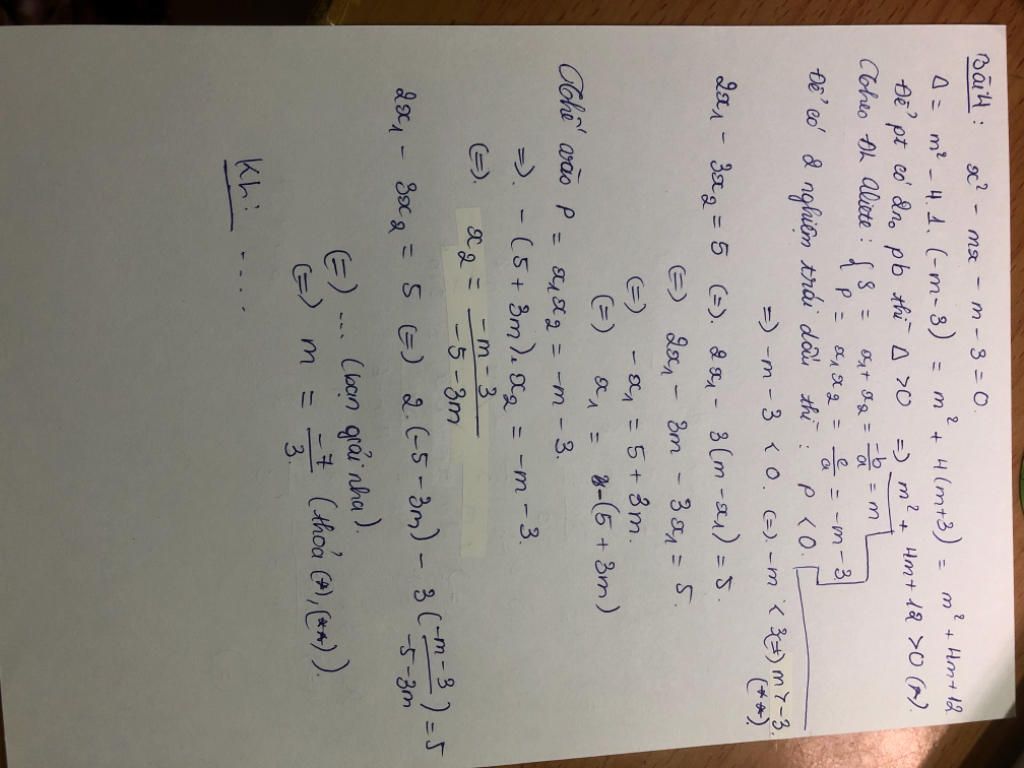 Bài 4: x² - mx - m - 3 = 0.
Δ = m² - 4.1.(-m-3) = m² + 4(m+3) = m² + 4m + 12
Để pt có 2n₀ pb thì Δ > 0 => m² + 4m + 12 > 0 (*).
Theo ĐL Viette: { S = x₁ + x₂ = -b/a = m
P = x₁x₂ = c/a = -m - 3
Để có 2 nghiệm trái dấu thì: P < 0.
=> -m - 3 < 0. (=). -m < 3 (=) m > -3. (**)
2x₁ - 3x₂ = 5 (=). 2x₁ - 3(m - x₁) = 5.
(=) 2x₁ - 3m - 3x₁ = 5.
(=) -x₁ = 5 + 3m.
(=) x₁ = -(5 + 3m)
Thế vào P = x₁x₂ = -m - 3.
=). -(5 + 3m).x₂ = -m - 3.
(=). x₂ = (-m - 3)/(-5 - 3m)
2x₁ - 3x₂ = 5 (=) 2.(-5 - 3m) - 3((-m - 3)/(-5 - 3m)) = 5
(=) ... (bạn giải nha).
(=) m = -7/3. (thỏa (*), (**)).
Kh: ....